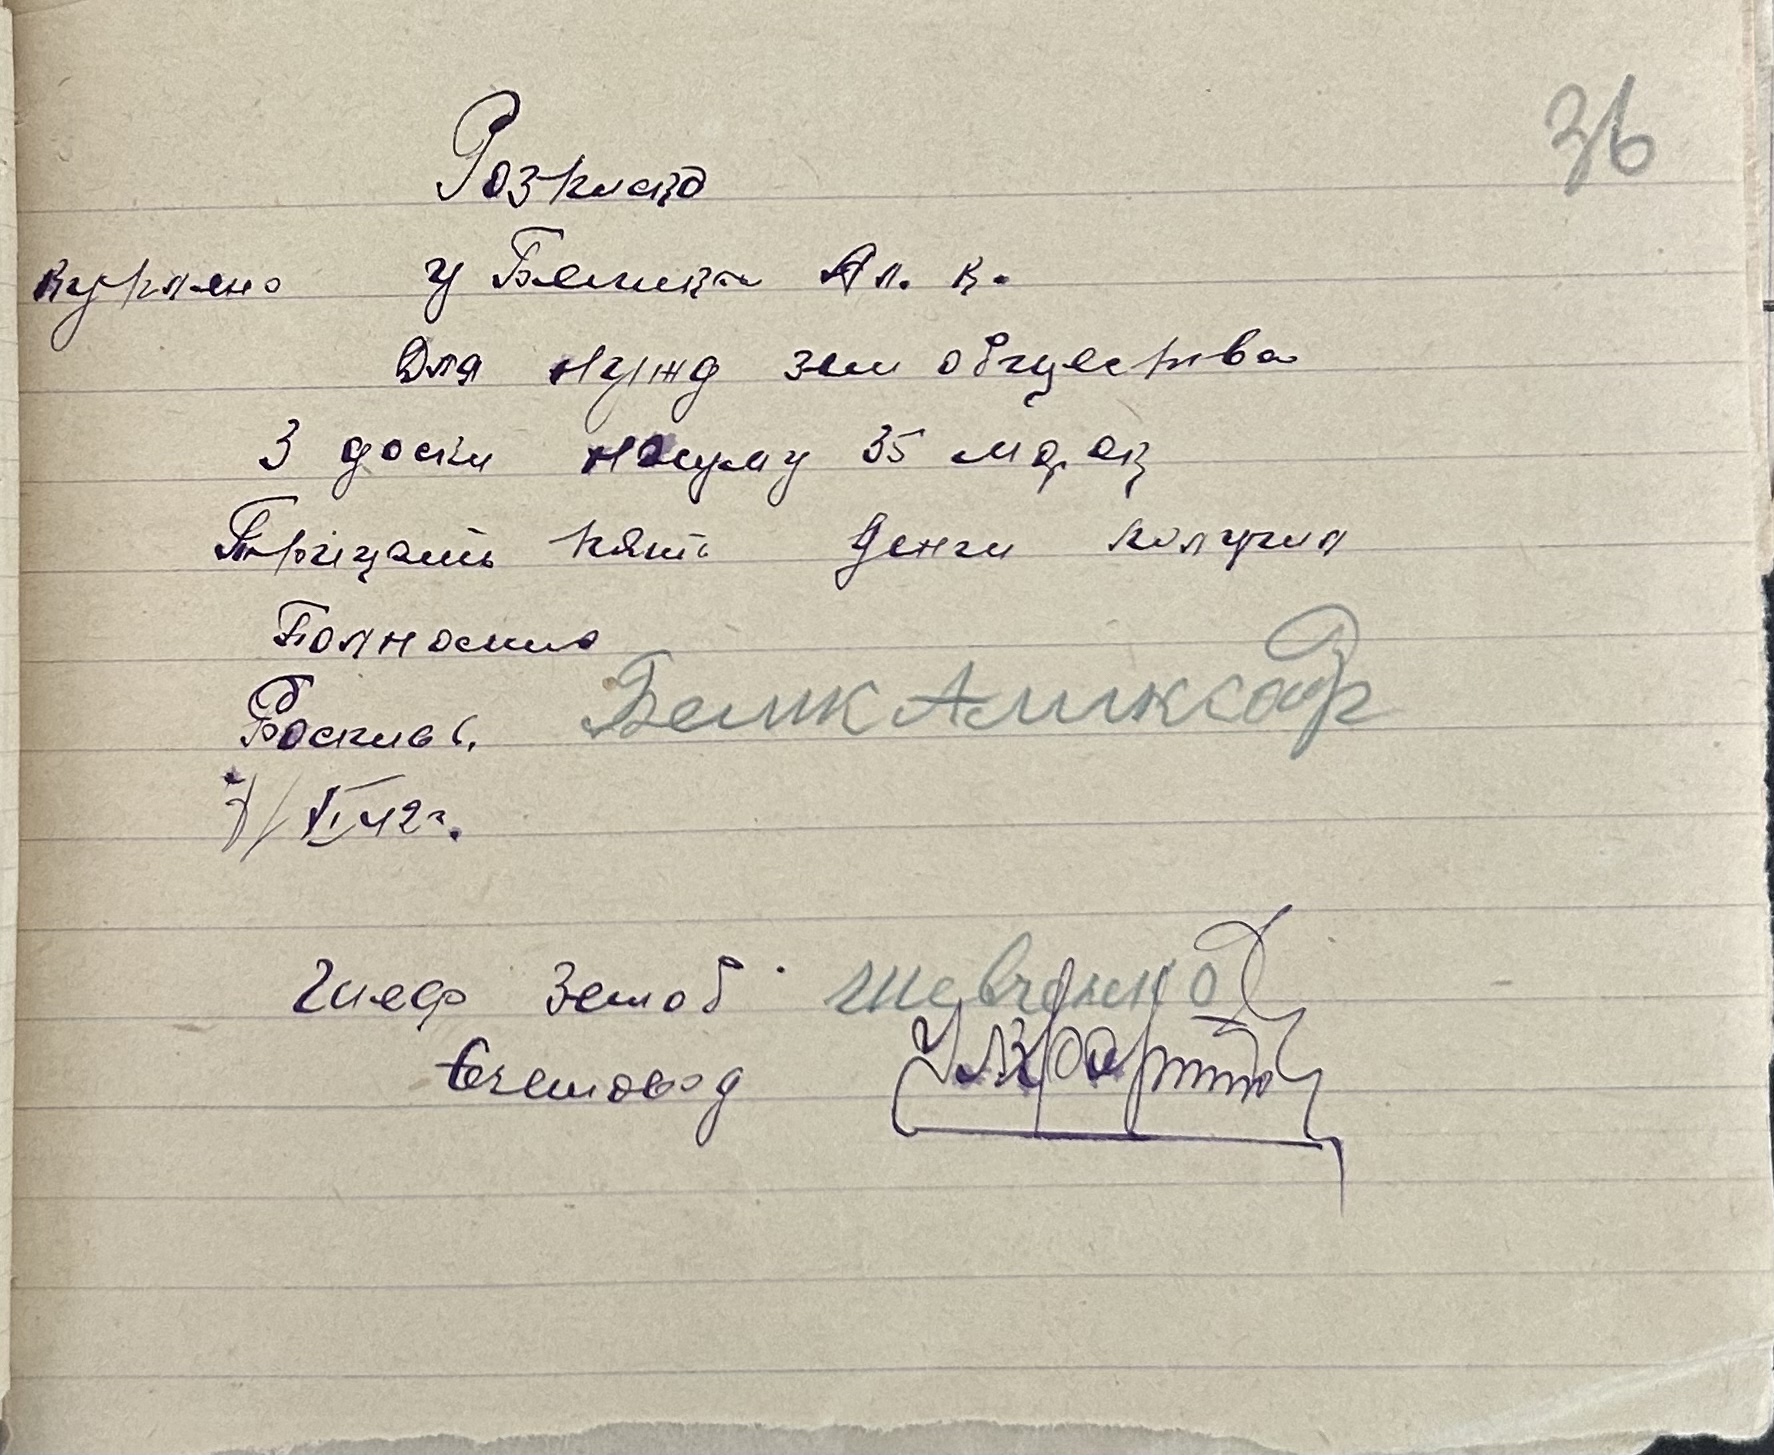 36
Розписка
куплено у Белика Ал. К.
Для нужд зем общества
3 доски на суму 35 марок
Трицать пять Денги получил
Полностю
Росписьс.
7/VI 42г.
Белик Аликсадр
Шеф Земоб. Шевченко
Счетовод